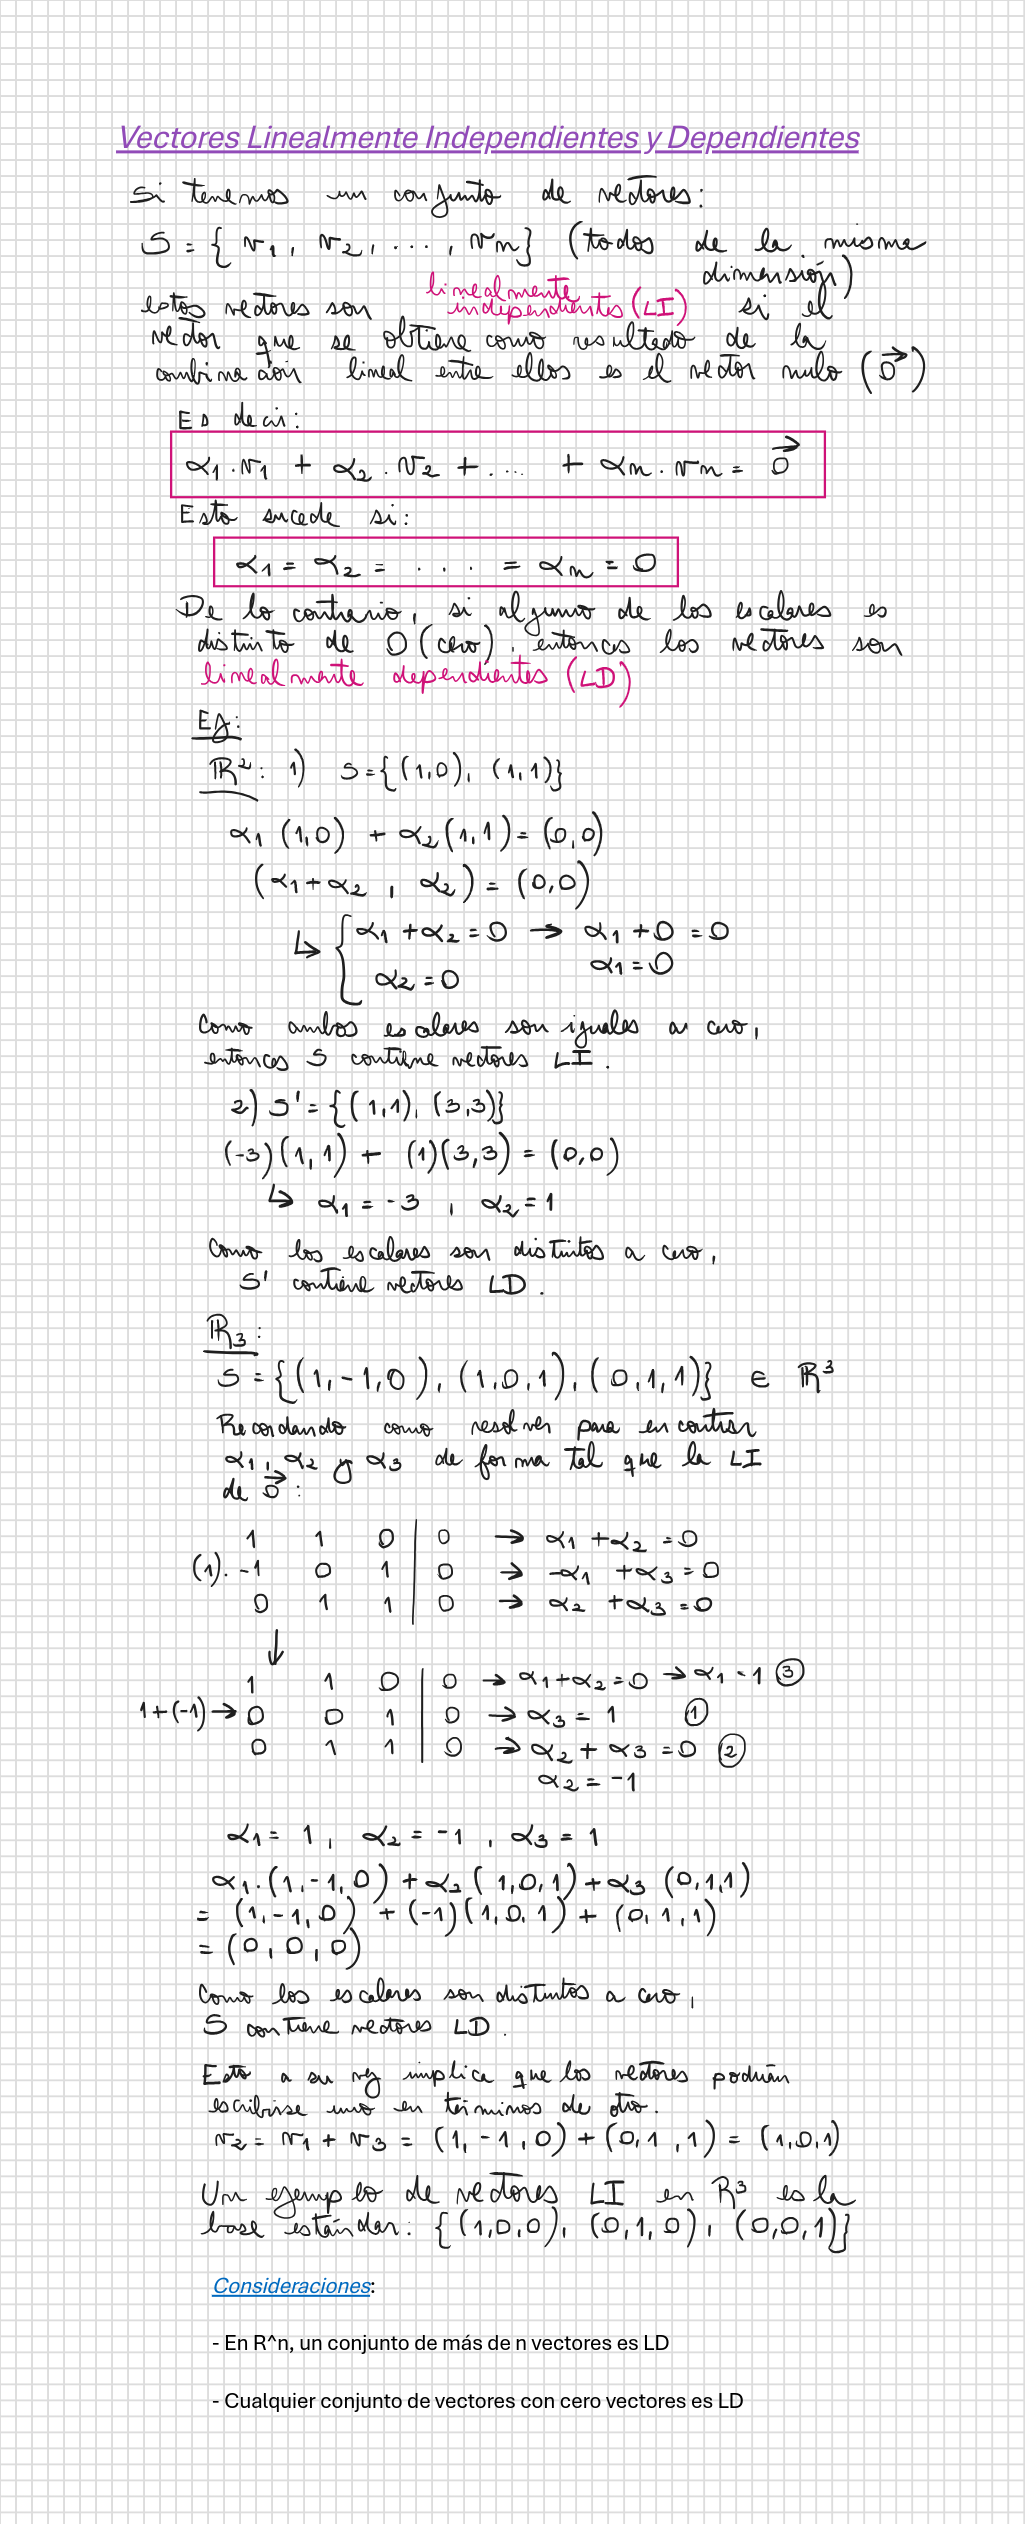 Vectores Linealmente Independientes y Dependientes
Si tenemos un conjunto de vectores:
S = { v1, v2, ..., vn} (todos de la misma
dimensión)
estos vectores son linealmente independientes (LI) si el
vector que se obtiene como resultado de la
combinación lineal entre ellos es el vector nulo (0⃗)
Es decir:
α1 . v1 + α2 . v2 + .... + αn . vn = 0⃗
Esto sucede si:
α1 = α2 = . . . = αn = 0
De lo contrario, si alguno de los escalares es
distinto de 0 (cero), entonces los vectores son
linealmente dependientes (LD)
Ej:
ℝ²: 1) S={(1,0), (1,1)}
α1 (1,0) + α2 (1,1) = (0,0)
(α1+α2 , α2) = (0,0)
↳ { α1 + α2 = 0 → α1 + 0 = 0
α2 = 0 α1 = 0
Como ambos escalares son iguales a cero,
entonces S contiene vectores LI.
2) S' = {(1,1), (3,3)}
(-3)(1,1) + (1)(3,3) = (0,0)
↳ α1 = -3 , α2 = 1
Como los escalares son distintos a cero,
S' contiene vectores LD.
ℝ3:
S = {(1,-1,0), (1,0,1), (0,1,1)} ∈ ℝ³
Recordando como resolver para encontrar
α1, α2 y α3 de forma tal que la LI
de 0⃗:
1 1 0 | 0 → α1 + α2 = 0
(1). -1 0 1 | 0 → -α1 + α3 = 0
0 1 1 | 0 → α2 + α3 = 0
↓
1 1 0 | 0 → α1+α2 = 0 → α1 - 1 ③
1+(-1) → 0 0 1 | 0 → α3 = 1 ①
0 1 1 | 0 → α2 + α3 = 0 ②
α2 = -1
α1 = 1, α2 = -1, α3 = 1
α1.(1,-1,0) + α2 (1,0,1) + α3 (0,1,1)
= (1,-1,0) + (-1)(1,0,1) + (0,1,1)
= (0,0,0)
Como los escalares son distintos a cero,
S contiene vectores LD.
Esto a su vez implica que los vectores podrían
escribirse uno en términos de otro.
v2 = v1 + v3 = (1,-1,0) + (0,1,1) = (1,0,1)
Un ejemplo de vectores LI en ℝ³ es la
base estándar: {(1,0,0), (0,1,0), (0,0,1)}
Consideraciones:
- En R^n, un conjunto de más de n vectores es LD
- Cualquier conjunto de vectores con cero vectores es LD